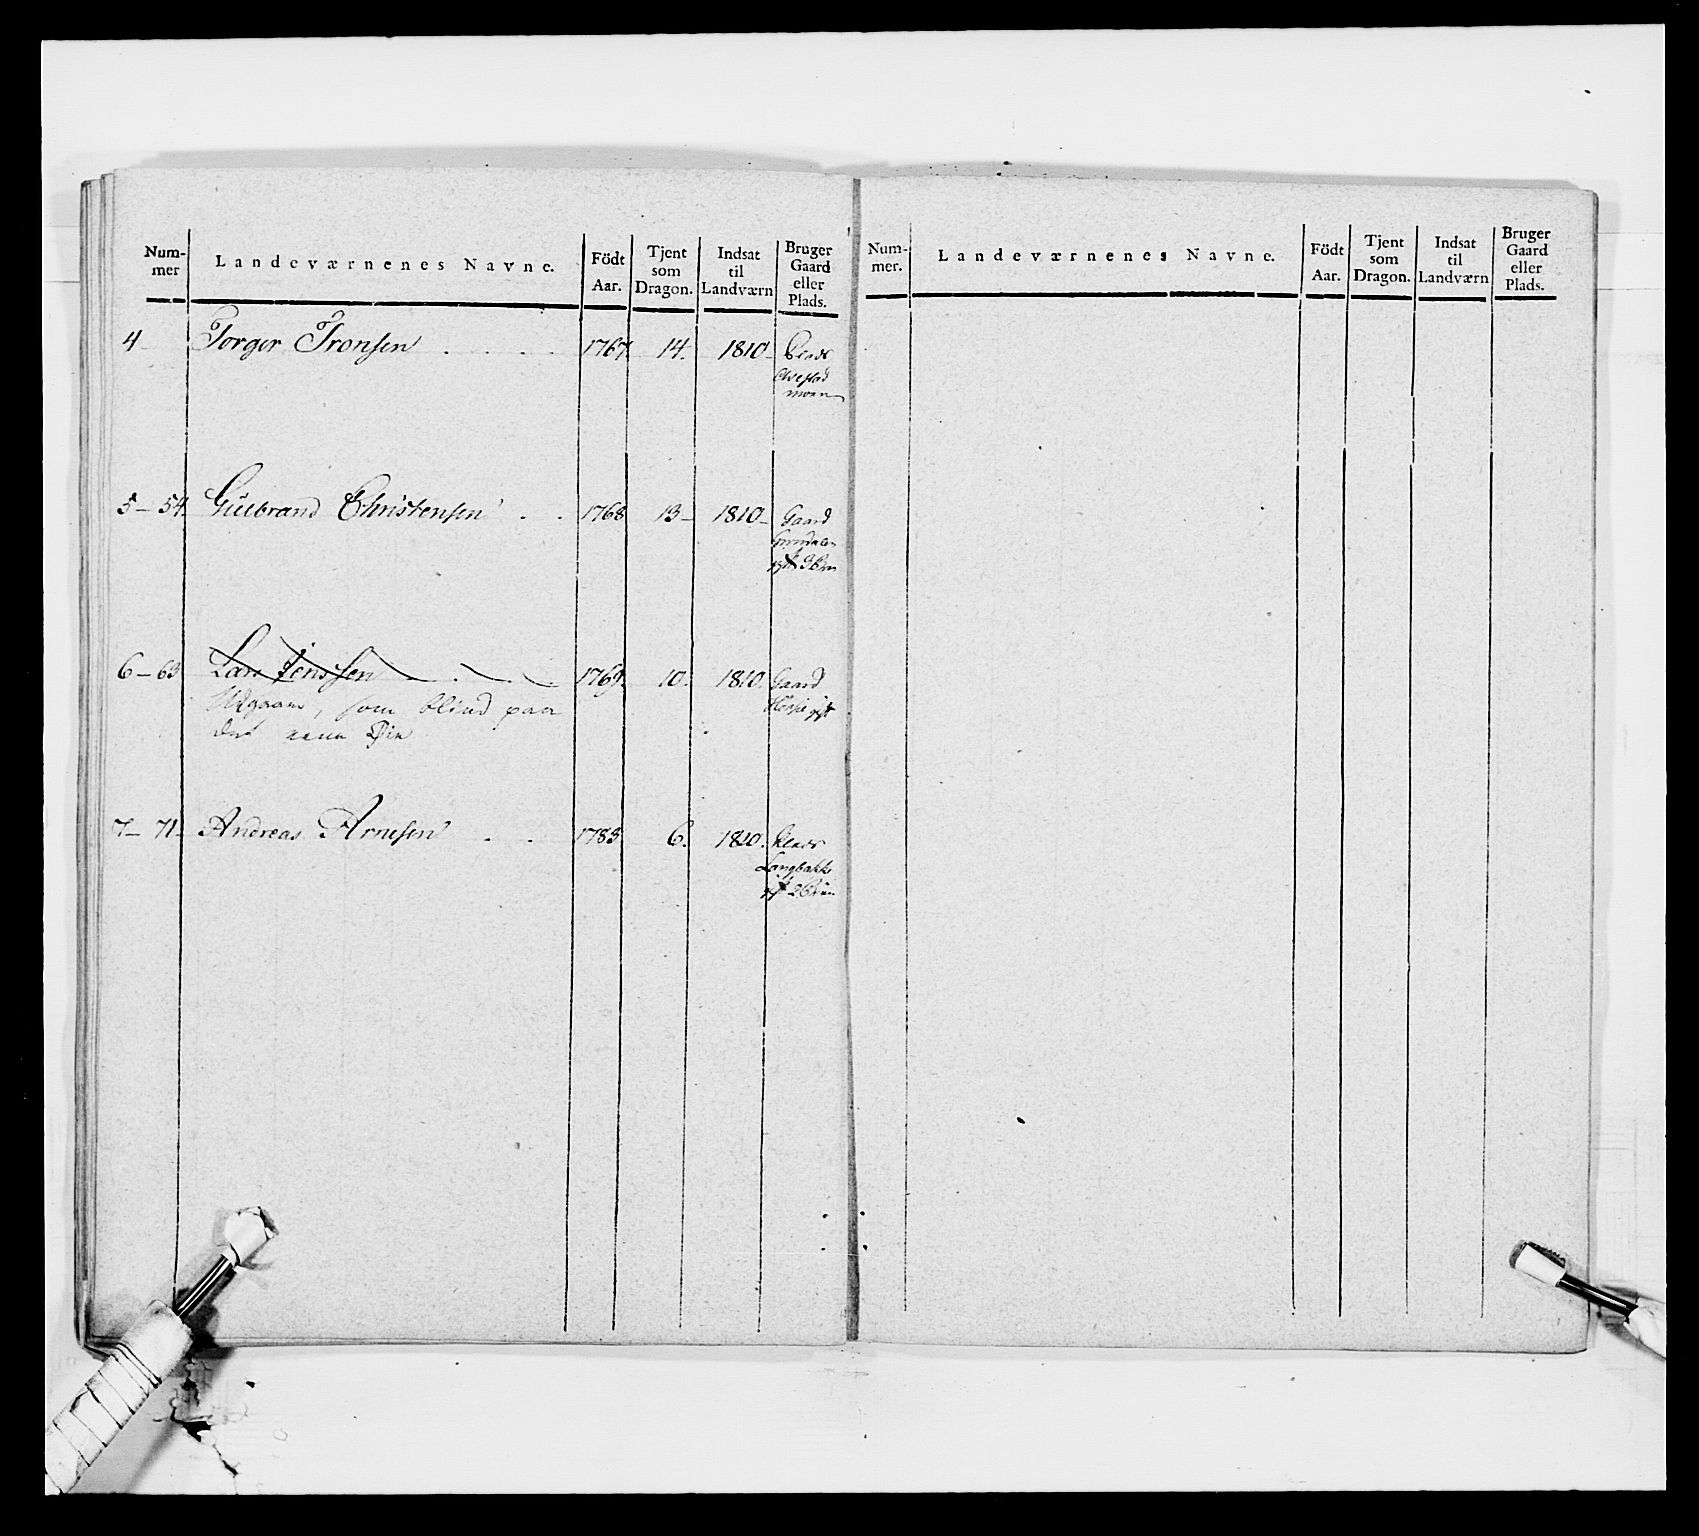 Num-
mer
Landeværnenes Navne.
Födt
Aar.
Tjent
som
Dragon.
Indsat
til
Landværn
Bruger
Gaard
eller
Plads.
4 Torger Tronsen 1767. 14. 1810
moen
5 – 54. Gulbrand Christensen 1768 13 – 1810 – Gaard
6 – 63 Lars Jenssen 1769. 10. 1810. Gaard
Udgaaer, som blind paa
det eene Øie
7 – 71 – Andreas Arnesen 1783 6. 1810.
Num-
mer.
Landeværnenes Navne.
Födt
Aar.
Tjent
som
Dragon.
Indsat
til
Landværn
Bruger
Gaard
eller
Plads.